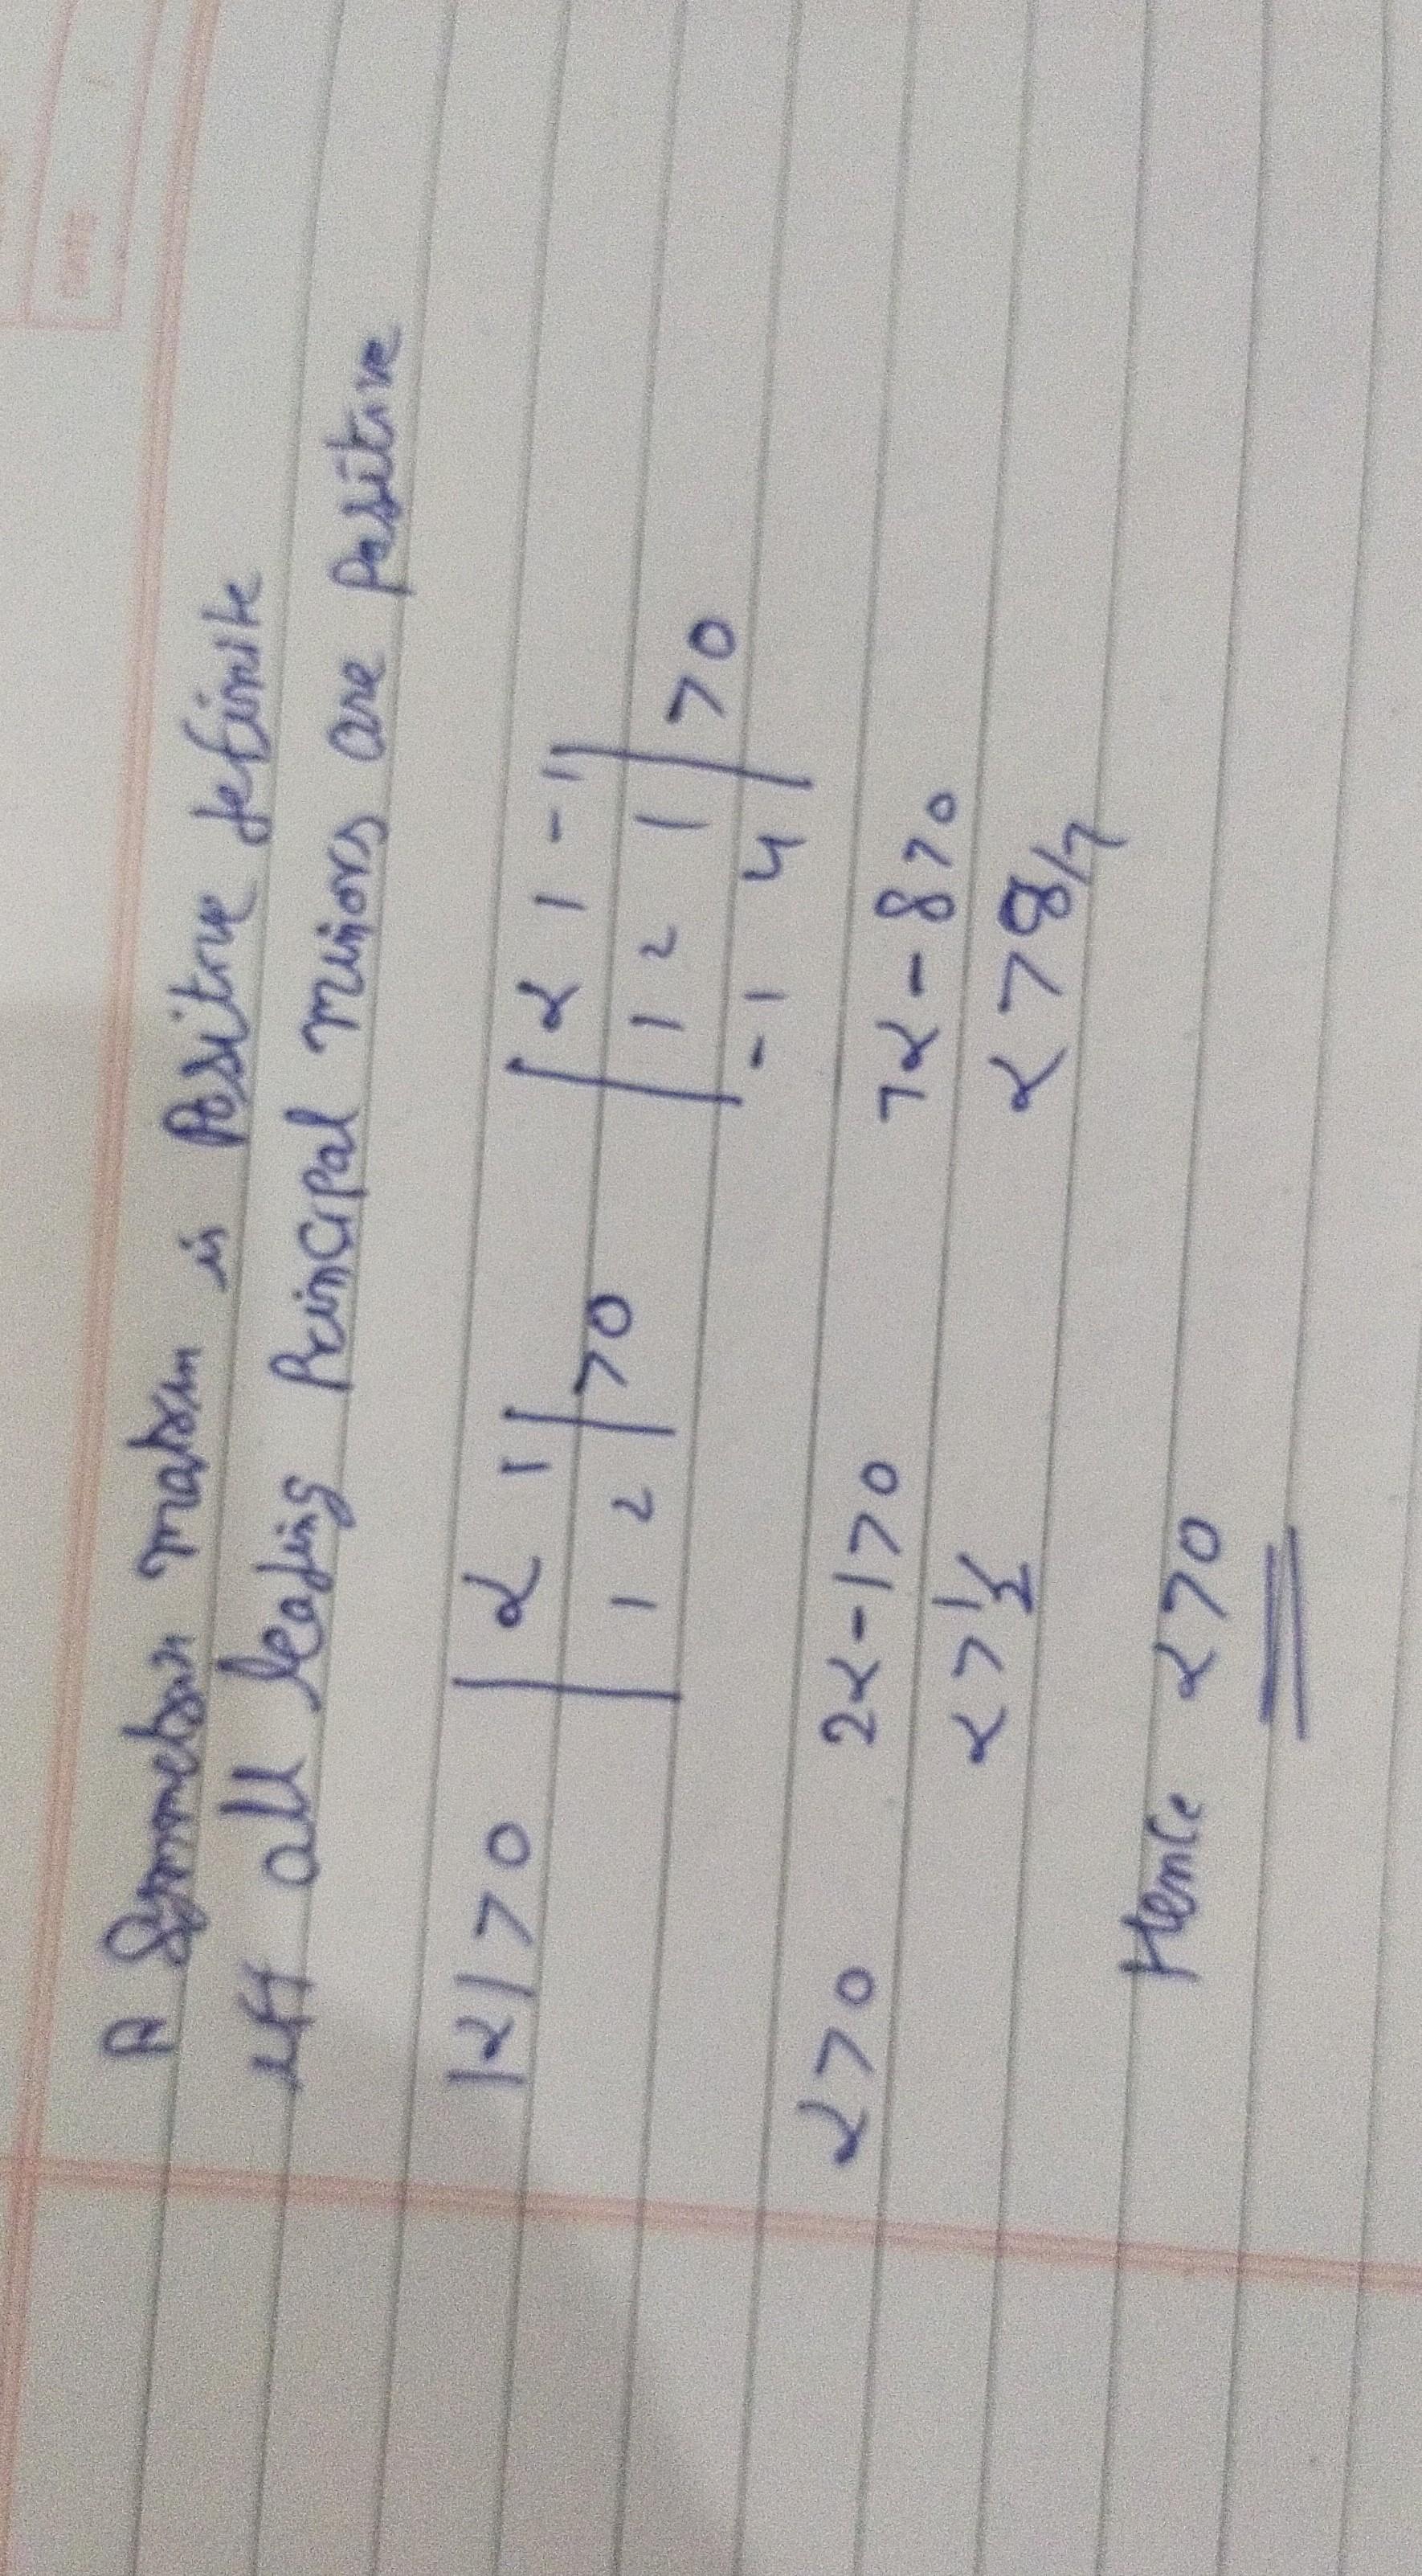 DATE
A Symmetric matrix is Positive definite
iff all leading Principal minors are Positive
|α|>0 |α 1| |α 1 -1|
|1 2|>0 |1 2 1|>0
|-1 1 4|
α>0 2α-1>0 7α-8>0
α>1/2 α>8/7
Hence α>0